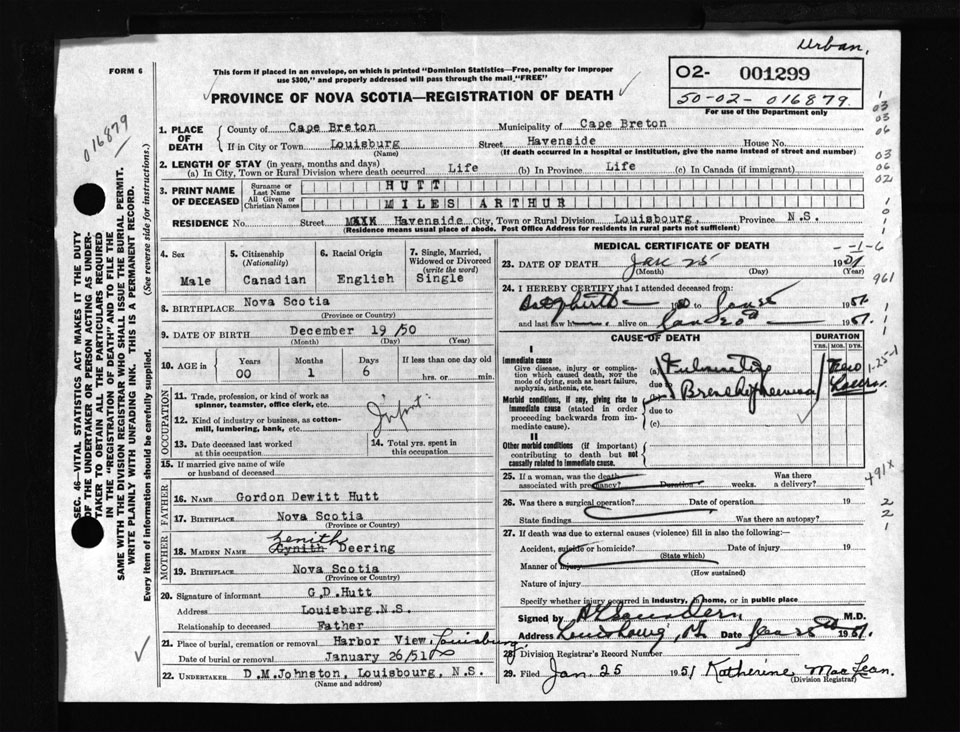 Urban,
FORM 6
This form if placed in an envelope, on which is printed "Dominion Statistics—Free, penalty for improper
use $300," and properly addressed will pass through the mail "FREE"
PROVINCE OF NOVA SCOTIA—REGISTRATION OF DEATH
O2- 001299
50-02-016879.
For use of the Department only
016879
1. PLACE OF DEATH
County of Cape Breton Municipality of Cape Breton
If in City or Town Louisburg Street Havenside House No.
(Name) (If death occurred in a hospital or institution, give the name instead of street and number)
2. LENGTH OF STAY (in years, months and days)
(a) In City, Town or Rural Division where death occurred Life (b) In Province Life (c) In Canada (if immigrant)
3. PRINT NAME OF DECEASED
Surname or Last Name HUTT
All Given or Christian Names MILES ARTHUR
RESIDENCE No. Street Havenside City, Town or Rural Division Louisbourg, Province N.S.
(Residence means usual place of abode. Post Office Address for residents in rural parts not sufficient)
4. Sex Male
5. Citizenship (Nationality) Canadian
6. Racial Origin English
7. Single, Married, Widowed or Divorced (write the word) Single
8. BIRTHPLACE Nova Scotia
(Province or Country)
9. DATE OF BIRTH December 19/50
(Month) (Day) (Year)
10. AGE in Years 00 Months 1 Days 6 If less than one day old
hrs. or min.
OCCUPATION
11. Trade, profession, or kind of work as
spinner, teamster, office clerk, etc.
12. Kind of industry or business, as cotton
mill, lumbering, bank, etc.
Infant
13. Date deceased last worked
at this occupation
14. Total yrs. spent in
this occupation
15. If married give name of wife
or husband of deceased
FATHER
16. NAME Gordon Dewitt Hutt
17. BIRTHPLACE Nova Scotia
(Province or Country)
MOTHER
Zenith
18. MAIDEN NAME Cynith Deering
19. BIRTHPLACE Nova Scotia
(Province or Country)
20. Signature of informant G.D.Hutt
Address Louisburg.N.S.
Relationship to deceased Father
21. Place of burial, cremation or removal Harbor View, Louisburg
Date of burial or removal January 26/51
22. UNDERTAKER D.M.Johnston, Louisbourg, N.S.
(Name and address)
MEDICAL CERTIFICATE OF DEATH
23. DATE OF DEATH Jan 25 1951
(Month) (Day) (Year)
24. I HEREBY CERTIFY that I attended deceased from:
to 195
and last saw h alive on Jan 195
CAUSE OF DEATH
DURATION
YRS. MOS. DYS.
I
Immediate cause
Give disease, injury or complication
which caused death, NOT the
mode of dying, such as heart failure,
asphyxia, asthenia, etc.
(a) Fulminating
due to
Morbid conditions, if any, giving rise to
immediate cause (stated in order
proceeding backwards from immediate
cause).
(b) Bronchopneumonia
due to
(c)
Few
hours
II
Other morbid conditions (if important)
contributing to death but not
causally related to immediate cause.
25. If a woman, was the death
associated with pregnancy? Duration weeks.
Was there
a delivery?
26. Was there a surgical operation? Date of operation 19
State findings Was there an autopsy?
27. If death was due to external causes (violence) fill in also the following:—
Accident, suicide or homicide? Date of injury 19
(State which)
Manner of injury
(How sustained)
Nature of injury
Specify whether injury occurred in industry, in home, or in public place
Signed by Saunders, M.D.
Address Date Jan 25 1951.
28. Division Registrar's Record Number
29. Filed Jan. 25 1951 Katherine MacLean.
(Division Registrar)
SEC. 46—VITAL STATISTICS ACT MAKES IT THE DUTY
OF THE UNDERTAKER OR PERSON ACTING AS UNDERTAKER
TO OBTAIN ALL THE PARTICULARS REQUIRED
IN THE "REGISTRATION OF DEATH" AND TO FILE THE
SAME WITH THE DIVISION REGISTRAR WHO SHALL ISSUE THE BURIAL PERMIT.
WRITE PLAINLY WITH UNFADING INK. THIS IS A PERMANENT RECORD.
Every item of information should be carefully supplied. (See reverse side for instructions.)
1
03
03
06
03
06
02
1
0
1
1
- -1-6
961
1
1
1
1-25-1
491x
2
2
1